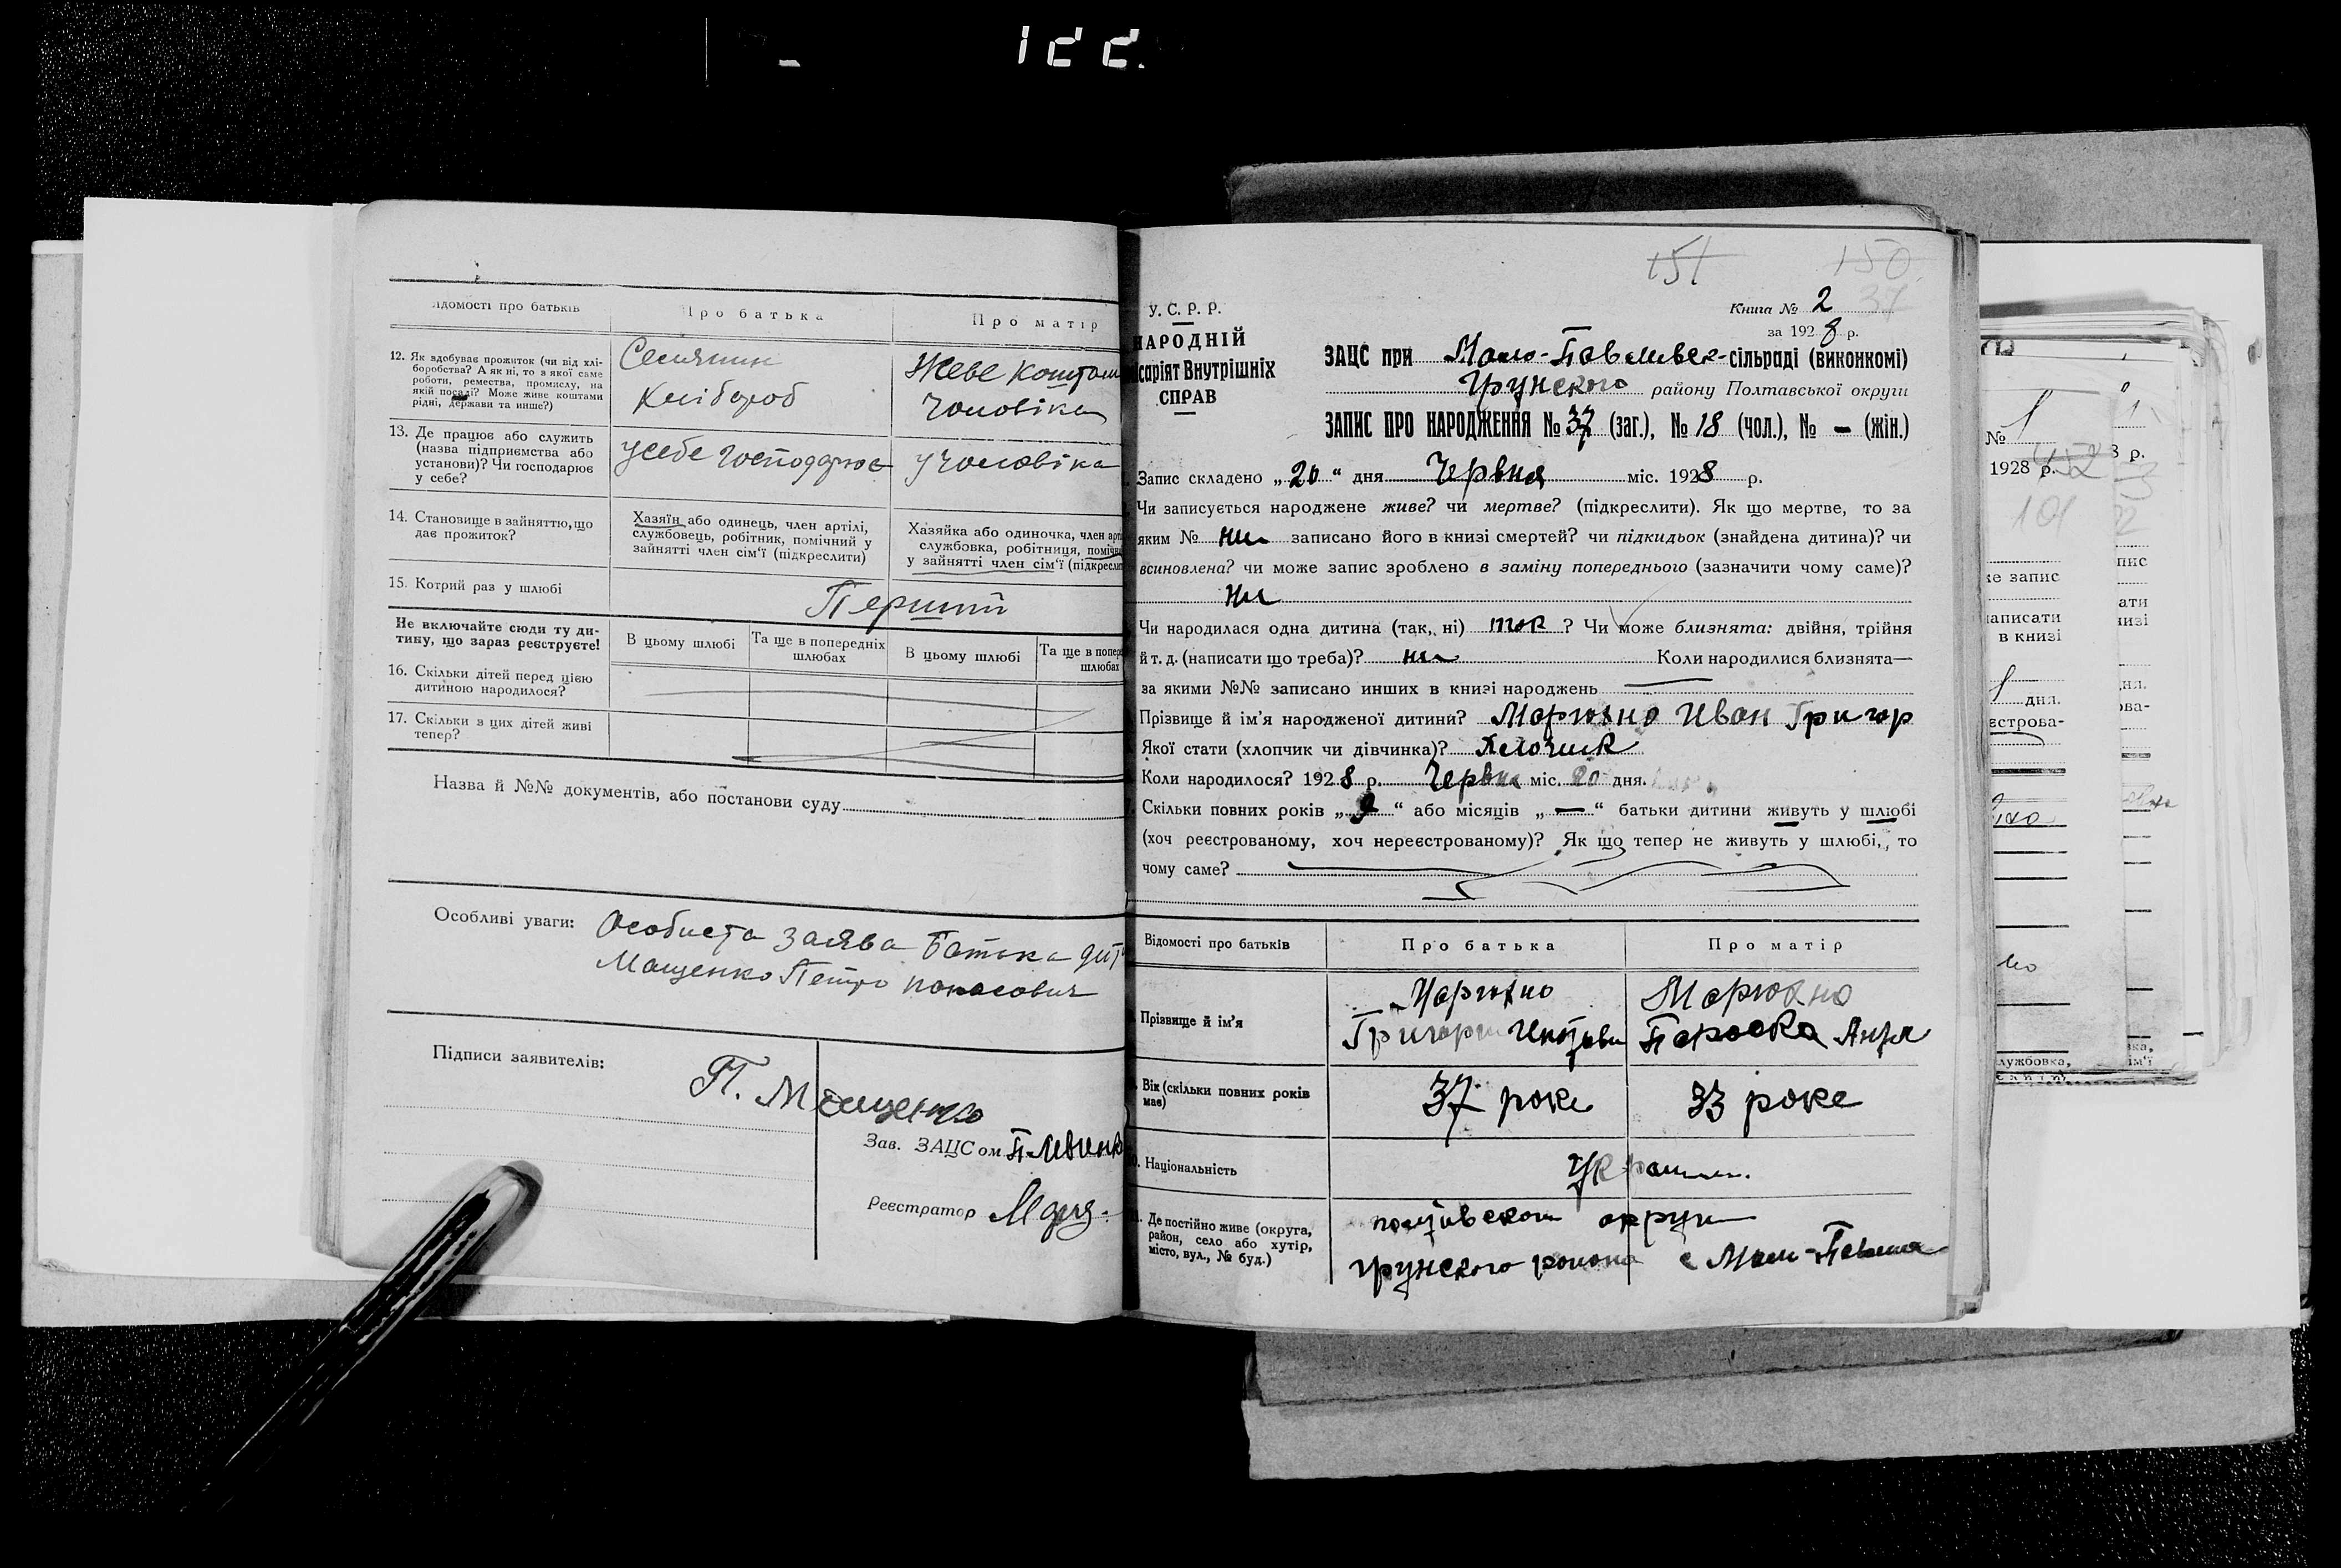 122.
ідомості про батьків
Про батька
Про матір
12. Як здобуває прожиток (чи від хлі-
боробства? А як ні, то з якої саме
роботи, ремества, промислу, на
якій посаді? Може живе коштами
рідні, держави та инше?)
Селянин
Хлібороб
Живе коштом
Чоловіка
13. Де працює або служить
(назва підприємства або
установи)? Чи господарює
у себе?
усебе господарює
у Чоловіка
14. Становище в зайняттю, що
дає прожиток?
Хазяїн або одинець, член артілі,
службовець, робітник, помічний у
зайнятті член сім'ї (підкреслити)
Хазяйка або одиночка, член арт
службовка, робітниця, помічн
у зайнятті член сім'ї (підкресли
15. Котрий раз у шлюбі
Перший
Не включайте сюди ту ди-
тину, що зараз реєструєте!
В цьому шлюбі
Та ще в попередніх
шлюбах
В цьому шлюбі
Та ще в попер
шлюбах
16. Скільки дітей перед цією
дитиною народилося?
17. Скільки з цих дітей живі
тепер?
Назва й №№ документів, або постанови суду
Особливі уваги: Особиста заява Батька дит
Мащенко Петро Панасович
Підписи заявителів:
П. Мащенко
Зав. ЗАЦСом
Реєстратор
151 150
У. С. Р. Р.
НАРОДНІЙ
саріят Внутрішніх
СПРАВ
Книга № 2 37
за 1928 р.
ЗАЦС при Мало-Павлівск-сільраді (виконкомі)
Грунского району Полтавської округи
ЗАПИС ПРО НАРОДЖЕННЯ № 37 (заг.), № 18 (чол.), № - (жін.)
Запис складено „20“ дня Червня міс. 1928 р.
Чи записується народжене живе? чи мертве? (підкреслити). Як що мертве, то за
яким № ни записано його в книзі смертей? чи підкидьок (знайдена дитина)? чи
всиновлена? чи може запис зроблено в заміну попереднього (зазначити чому саме)?
ни
Чи народилася одна дитина (так, ні) так ? Чи може близнята: двійня, трійня
й т. д. (написати що треба)? ни Коли народилися близнята—
за якими №№ записано инших в книзі народжень
Прізвище й ім'я народженої дитини? Марюхно Иван Григор
Якої стати (хлопчик чи дівчинка)? Хлочик
Коли народилося? 1928 р. Червн міс. 20 дня.
Скільки повних років „9“ або місяців „—“ батьки дитини живуть у шлюбі
(хоч реєстрованому, хоч нереєстрованому)? Як що тепер не живуть у шлюбі, то
чому саме?
Відомості про батьків
Про батька
Про матір
Прізвище й ім'я
Марюхно
Григори
Марюхно
Параска
Вік (скільки повних років
має)
37 роке
33 роке
Національність
Де постійно живе (округа,
район, село або хутір,
місто, вул., № буд.)
округи
грунского района с Мало-Павлівка
№ 1
1928 р.
101